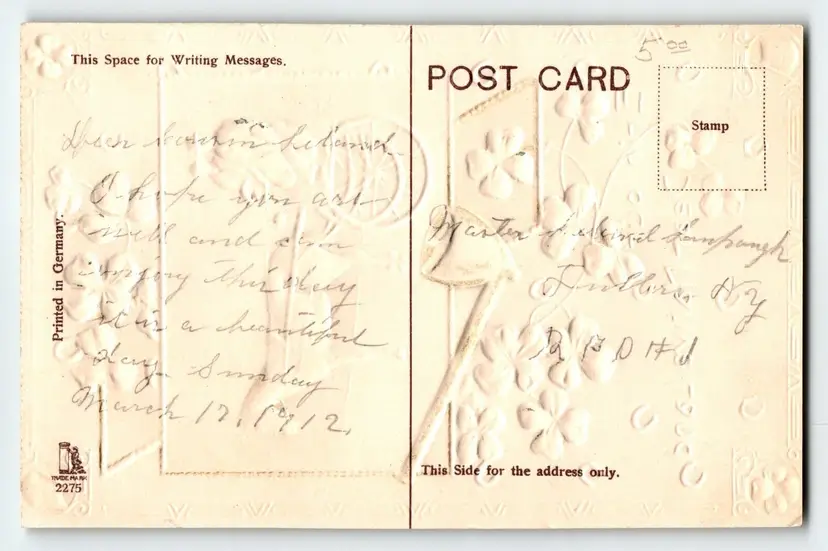 This Space for Writing Messages.
Dear Cousin Leland
I hope you are
well and can
enjoy this day
it is a beautiful
day. Sunday
March 17, 1912.
Printed in Germany.
TRADE MARK
2275
5.00
POST CARD
Stamp
Master Leland
Fullers, NY
R F D # 1
This Side for the address only.